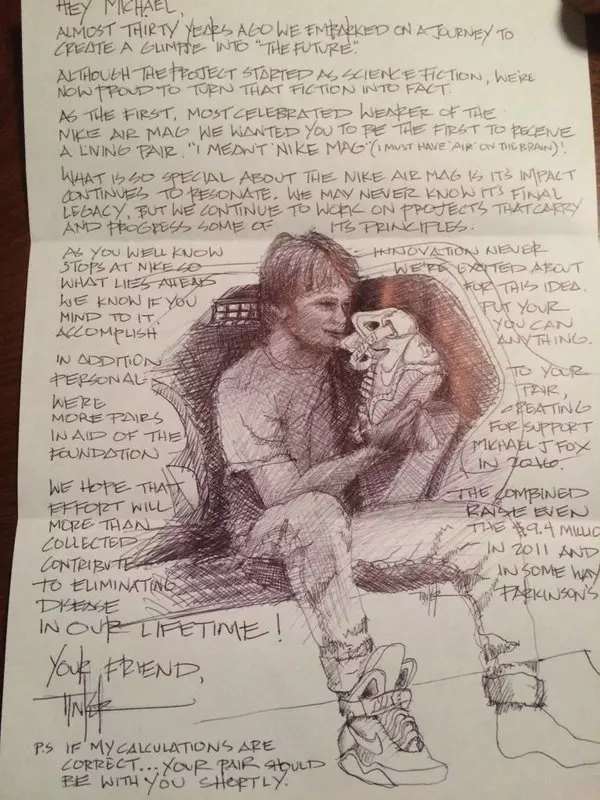 HEY MICHAEL,
ALMOST THIRTY YEARS AGO WE EMBARKED ON A JOURNEY TO
CREATE A GLIMPSE INTO "THE FUTURE."
ALTHOUGH THE PROJECT STARTED AS SCIENCE FICTION, WE'RE
NOW PROUD TO TURN THAT FICTION INTO FACT.
AS THE FIRST, MOST CELEBRATED WEARER OF THE
NIKE AIR MAG WE WANTED YOU TO BE THE FIRST TO RECEIVE
A LIVING PAIR. "I MEANT 'NIKE MAG' (I MUST HAVE 'AIR' ON THE BRAIN)!
WHAT IS SO SPECIAL ABOUT THE NIKE AIR MAG IS ITS IMPACT
CONTINUES TO RESONATE. WE MAY NEVER KNOW ITS FINAL
LEGACY, BUT WE CONTINUE TO WORK ON PROJECTS THAT CARRY
AND PROGRESS SOME OF ITS PRINCIPLES.
AS YOU WELL KNOW INNOVATION NEVER
STOPS AT NIKE SO WE'RE EXCITED ABOUT
WHAT LIES AHEAD FOR THIS IDEA.
WE KNOW IF YOU PUT YOUR
MIND TO IT. YOU CAN
ACCOMPLISH ANYTHING.
IN ADDITION TO YOUR
PERSONAL PAIR,
WE'RE CREATING
MORE PAIRS FOR SUPPORT
IN AID OF THE MICHAEL J FOX
FOUNDATION IN 2016.
WE HOPE THAT THE COMBINED
EFFORT WILL RAISE EVEN
MORE THAN THE $9.4 MILLIO
COLLECTED IN 2011 AND
CONTRIBUTE IN SOME WAY
TO ELIMINATING PARKINSON'S
DISEASE TINKER
IN OUR LIFETIME!
YOUR FRIEND,
TINKER
P.S IF MY CALCULATIONS ARE
CORRECT... YOUR PAIR SHOULD
BE WITH YOU SHORTLY.